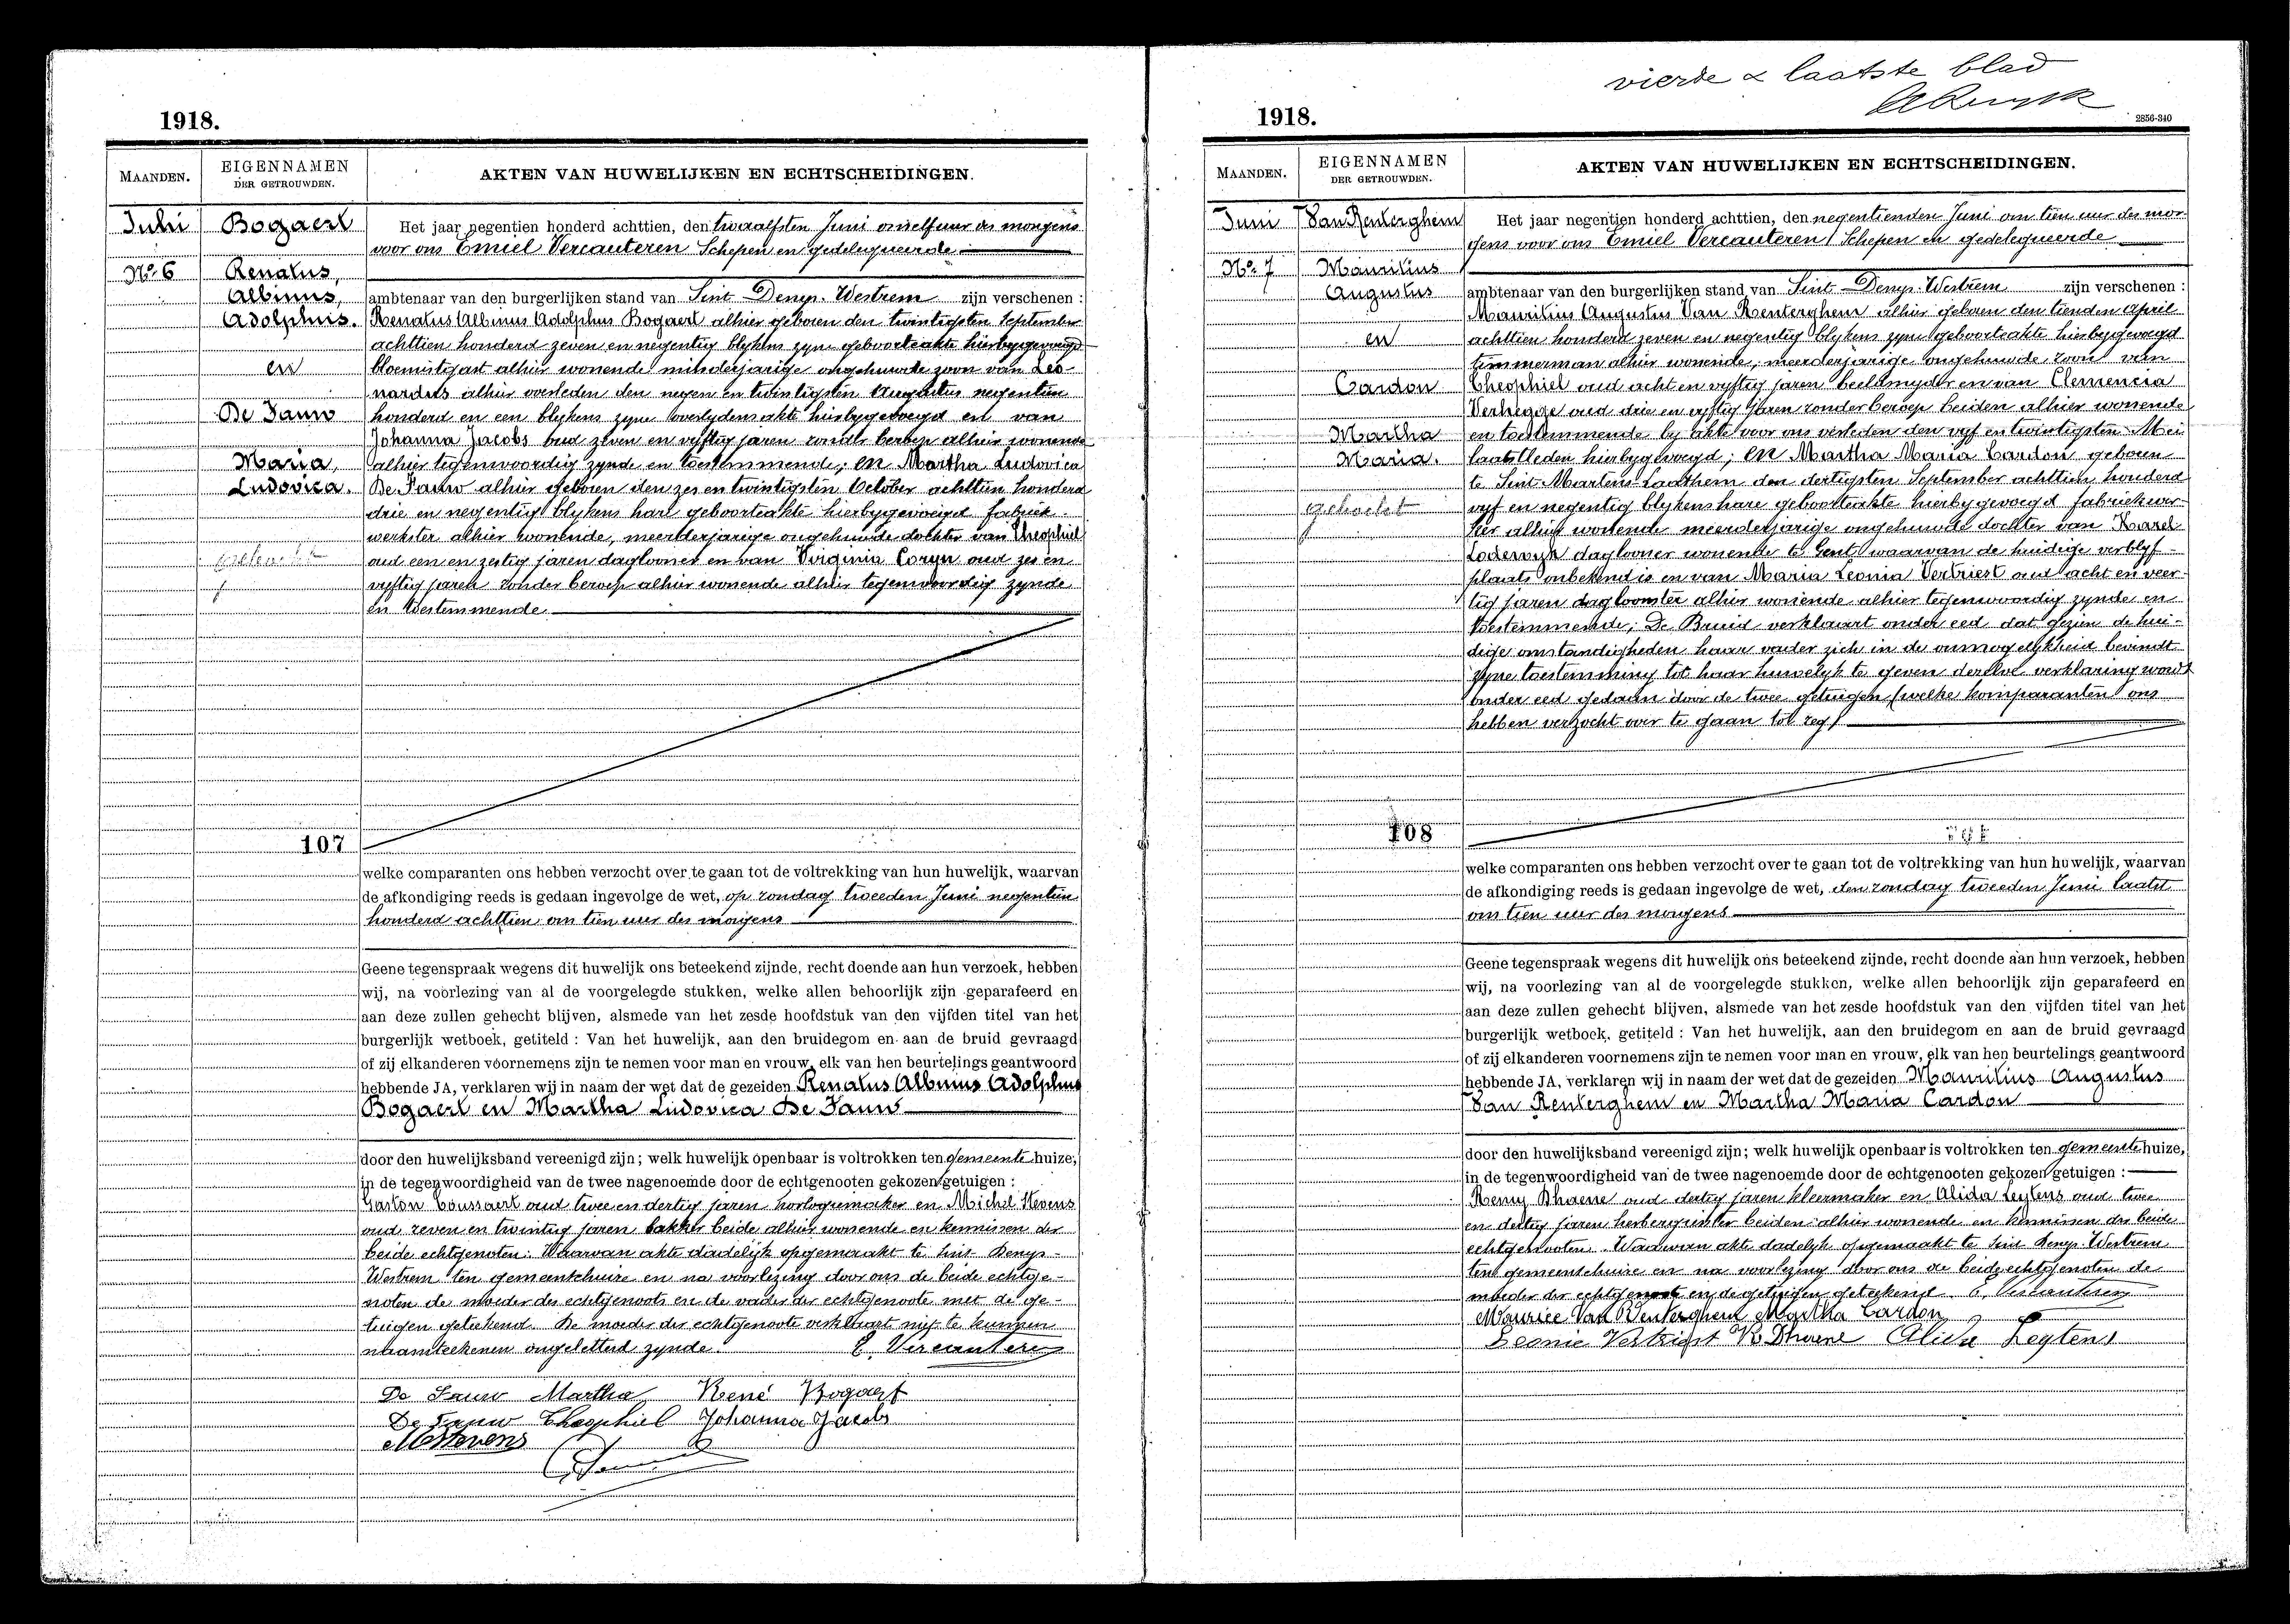 1918.
MAANDEN.
EIGENNAMEN
DER GETROUWDEN.
AKTEN VAN HUWELIJKEN EN ECHTSCHEIDINGEN.
Juni
No 6
Bogaert
Renatus,
Albinus,
Adolphus.
en
De Fauw
Maria,
Ludovica.
107
Het jaar negentien honderd achttien, den twaalfsten Juni om elf uur des morgens
voor ons Emiel Vercauteren Schepen en gedelegueerde
ambtenaar van den burgerlijken stand van Sint Denys-Westrem zijn verschenen :
Renatus Albinus Adolphus Bogaert alhier geboren den twintigsten September
achttien honderd zeven en negentig blykens zyne geboorteakte hierbygevoegd
bloemist alhier wonende minderjarige ongehuwde zoon van Leo-
nardus alhier overleden den negen en twintigsten Augustus negentien
honderd en een blykens zyne overlydensakte hierbygevoegd en van
Johanna Jacobs oud zeven en vyftig jaren zonder beroep alhier wonende
alhier tegenwoordig zynde en toestemmende; en Martha Ludovica
De Fauw alhier geboren den zes en twintigsten October achttien honderd
drie en negentig blykens hare geboorteakte hierbygevoegd fabriek-
werkster alhier wonende, meerderjarige ongehuwde dochter van Theophiel
oud een en zestig jaren daglooner en van Virginia Coryn oud zes en
vyftig jaren zonder beroep alhier wonende alhier tegenwoordig zynde
en toestemmende
welke comparanten ons hebben verzocht over te gaan tot de voltrekking van hun huwelijk, waarvan
de afkondiging reeds is gedaan ingevolge de wet, op zondag tweeden Juni negentien
honderd achttien om tien uur des morgens
Geene tegenspraak wegens dit huwelijk ons beteekend zijnde, recht doende aan hun verzoek, hebben
wij, na voorlezing van al de voorgelegde stukken, welke allen behoorlijk zijn geparafeerd en
aan deze zullen gehecht blijven, alsmede van het zesde hoofdstuk van den vijfden titel van het
burgerlijk wetboek, getiteld : Van het huwelijk, aan den bruidegom en aan de bruid gevraagd
of zij elkanderen voornemens zijn te nemen voor man en vrouw, elk van hen beurtelings geantwoord
hebbende JA, verklaren wij in naam der wet dat de gezeiden Renatus Albinus Adolphus
Bogaert en Martha Ludovica De Fauw
door den huwelijksband vereenigd zijn; welk huwelijk openbaar is voltrokken ten gemeente huize,
in de tegenwoordigheid van de twee nagenoemde door de echtgenooten gekozen getuigen :
Gaston Coussaert oud twee en dertig jaren horlogiemaker en Michel Stevens
oud zeven en twintig jaren bakker beide alhier wonende en kennissen der
beide echtgenoten. Waarvan akte dadelijk opgemaakt te Sint Denys-
Westrem ten gemeentehuize en na voorlezing door ons de beide echtge-
noten de moeder des echtgenoots en de vader der echtgenoote met de ge-
tuigen geteekend. De moeder der echtgenoote verklaart niet te kunnen
naamteekenen ongeletterd zynde. E. Vercauteren
De Fauw Martha René Bogaert
De Fauw Theophiel Johanna Jacobs
M Stevens
vierde & laatste blad
1918.
2856-340
MAANDEN.
EIGENNAMEN
DER GETROUWDEN.
AKTEN VAN HUWELIJKEN EN ECHTSCHEIDINGEN.
Juni
No 7
Van Renterghem
Mauritius
Augustus
en
Cardon
Martha
Maria.
gehecht
108
Het jaar negentien honderd achttien, den negentienden Juni om tien uur des mor-
gens voor ons Emiel Vercauteren Schepen en gedelegueerde
ambtenaar van den burgerlijken stand van Sint Denys-Westrem zijn verschenen :
Mauritius Augustus Van Renterghem alhier geboren den tienden April
achttien honderd zeven en negentig blykens zyne geboorteakte hierbygevoegd
timmerman alhier wonende, meerderjarige ongehuwde zoon van
Theophiel oud acht en vyftig jaren beeldsnyder en van Clemencia
Verhegge oud drie en vyftig jaren zonder beroep beiden alhier wonende
en toestemmende by akte voor ons verleden den vyf en twintigsten Mei
laatstleden hierbygevoegd; en Martha Maria Cardon geboren
te Sint-Martens-Laathem den dertigsten September achttien honderd
vyf en negentig blykens hare geboorteakte hierbygevoegd fabriekwer-
ker alhier wonende meerderjarige ongehuwde dochter van Karel
Lodewyk daglooner wonende te Gent waarvan de huidige verblyf-
plaats onbekend is en van Maria Leonia Vertriest oud acht en veer-
tig jaren dagloonster alhier wonende alhier tegenwoordig zynde en
toestemmende; De Bruid verklaart onder eed dat gezien de hui-
dige omstandigheden haar vader zich in de onmogelykheid bevindt
zyne toestemming tot haar huwelyk te geven dezelve verklaring wordt
onder eed gedaan door de twee getuigen (welke komparanten ons
hebben verzocht over te gaan tot zeg)
welke comparanten ons hebben verzocht over te gaan tot de voltrekking van hun huwelijk, waarvan
de afkondiging reeds is gedaan ingevolge de wet, den zondag tweeden Juni laatst
om tien uur des morgens
Geene tegenspraak wegens dit huwelijk ons beteekend zijnde, recht doende aan hun verzoek, hebben
wij, na voorlezing van al de voorgelegde stukken, welke allen behoorlijk zijn geparafeerd en
aan deze zullen gehecht blijven, alsmede van het zesde hoofdstuk van den vijfden titel van het
burgerlijk wetboek, getiteld : Van het huwelijk, aan den bruidegom en aan de bruid gevraagd
of zij elkanderen voornemens zijn te nemen voor man en vrouw, elk van hen beurtelings geantwoord
hebbende JA, verklaren wij in naam der wet dat de gezeiden Mauritius Augustus
Van Renterghem en Martha Maria Cardon
door den huwelijksband vereenigd zijn; welk huwelijk openbaar is voltrokken ten gemeente huize,
in de tegenwoordigheid van de twee nagenoemde door de echtgenooten gekozen getuigen :
Remy Dhaene oud dertig jaren kleermaker en Alida Leytens oud twee
en dertig jaren herbergierster beiden alhier wonende en kennissen der beide
echtgenooten. Waarvan akte dadelyk opgemaakt te Sint Denys-Westrem
ten gemeentehuize en na voorlezing door ons de beide echtgenoten de
moeder der echtgenoote en de getuigen geteekend. E. Vercauteren
Maurice Van Renterghem Martha Cardon
Leonie Vertriest R. Dhaene Alida Leytens